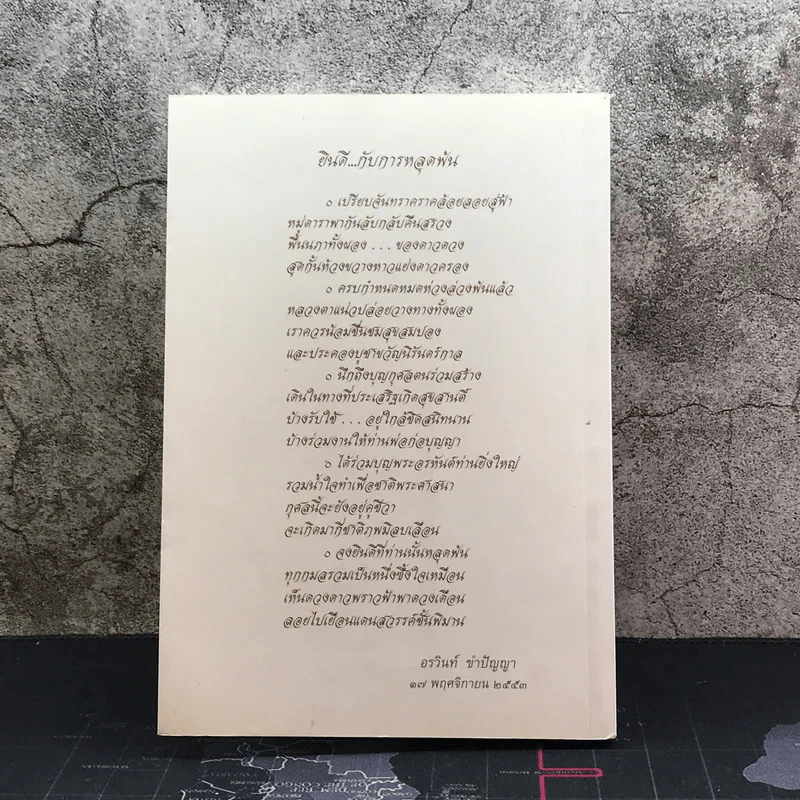 ยินดี...กับการหลุดพ้น
๐ เปรียบจันทราคราคล้อยลอยสู่ฟ้า
หมู่ดาราพากันลับกลับคืนสรวง
พื้นนภาทั้งผอง...ของดาวดวง
สุดกั้นห้วงขวางหาวแย่งดาวครอง
๐ ครบกำหนดหมดห่วงล่วงพ้นแล้ว
หลวงตาแน่วปล่อยวางทางทั้งผอง
เราควรน้อมชื่นชมสุขสมปอง
และประคองบูชาขวัญนิรันดร์กาล
๐ นึกถึงบุญกุศลตนร่วมสร้าง
เดินในทางที่ประเสริฐเกิดสุขสานติ์
บ้างรับใช้...อยู่ใกล้ชิดสนิทนาน
บ้างร่วมงานให้ท่านพ่อก่อบุญญา
๐ ได้ร่วมบุญพระอรหันต์ท่านยิ่งใหญ่
รวมน้ำใจทำเพื่อชาติพระศาสนา
กุศลนี้จะยังอยู่คู่ชีวา
จะเกิดมากี่ชาติภพมิลบเลือน
๐ จงยินดีที่ท่านนั้นหลุดพ้น
ทุกกมลรวมเป็นหนึ่งซึ้งใจเหมือน
เห็นดวงดาวพราวฟ้าพาดวงเดือน
ลอยไปเยือนแดนสวรรค์ชั้นพิมาน
อรวินท์ ขำปัญญา
๑๗ พฤศจิกายน ๒๕๕๓